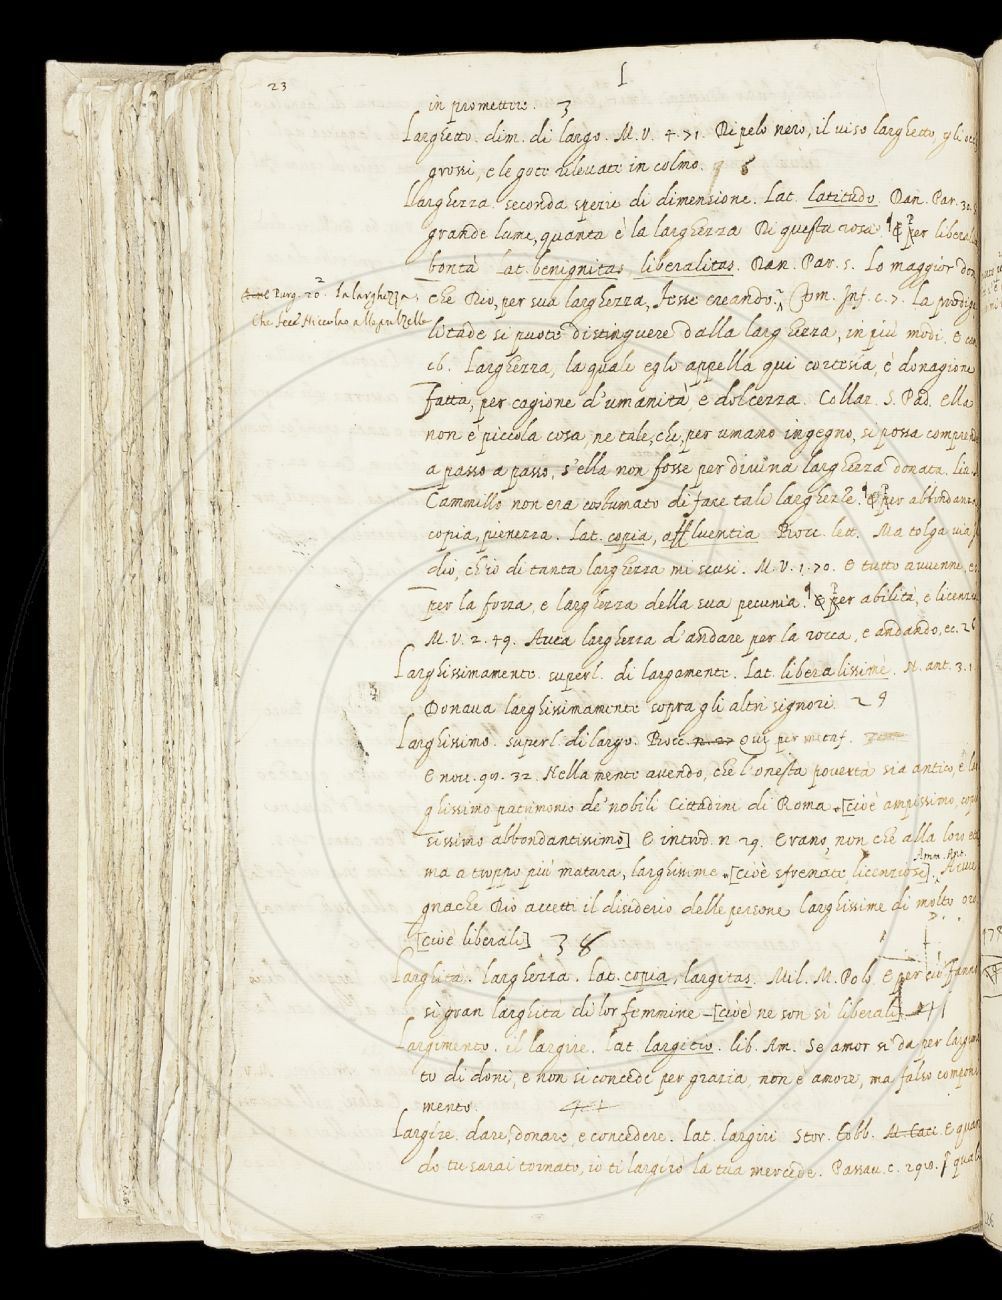 23
L
in promettere. 3
Larghetto. dim. di largo. M. V. 4. 71. Di pelo nero, il viso larghetto, gli occ
grossi, e le gote rilevate in colmo. 8
Larghezza. seconda spezie di dimensione. Lat. latitudo. Dan. Par. 30.
grande lume, quanta è la larghezza Di questa rosa. ¶ per libera
bontà Lat. benignitas, liberalitas. Dan. Par. 5. Lo maggior don
e Purg. 20. La larghezza,
Che fece Niccolao alle pulzelle
che Dio, per sua larghezza, Fesse creando. Com. Inf. c. 7. La prodiga
litade si puote distinguere dalla larghezza, in più modi. E
16. Larghezza, la quale egli appella qui cortesia, è donagione
fatta, per cagione d'umanità e dolcezza. Collaz. S. Pad. Ella
non è piccola cosa, ne tale, che, per umano ingegno, si possa comprende
a passo a passo, s'ella non fosse per divina larghezza donata. Liv.
Cammillo non era costumato di fare tali larghezze. ¶ per abbondanza
copia, pienezza. Lat. copia, affluentia Bocc. lett. Ma tolga via
dio, ch'io di tanta larghezza mi scusi. M. V. 1. 70. E tutto avvenne,
per la forza, e larghezza della sua pecunia. ¶ per abilità, e licenzia
M. V. 2. 49. Avea larghezza d'andare per la rocca, e andando, ec. 26
Larghissimamente. superl. di largamente. Lat. liberalissime. N. ant. 3. 1
Donava larghissimamente sopra gli altri signori. 29
Larghissimo. Superl. di largo. Bocc. n. 27 Qui per metaf.
E nov. 98. 32. Nella mente avendo, che l'onesta povertà sia antico, e lar
ghissimo patrimonio de' nobili Cittadini di Roma [cioè ampissimo, copio
sissimo abbondantissimo] E introd. n. 29. Erano, non che alla loro età
ma a troppo più matura, larghissime [cioè sfrenate, licenziose]. Amm. Ant.
gnache Dio accetti il disiderio delle persone larghissime di molto oro
[cioè liberali] 38
Larghità. larghezza. Lat. copia, largitas. Mil. M. Polo E per ciò fanno
sì gran larghità di lor femmine [cioè ne son sì liberali] 41
Largimento. il largire. Lat. largitio. lib. Am. Se amor si dà per largimen
to di doni, e non si concede per grazia, non è amore, ma falso componi
mento. 44
Largire. dare, donare, e concedere. Lat. largiri Stor. Tobb. E quan
do tu sarai tornato, io ti largirò la tua mercede. Passav. c. 298.